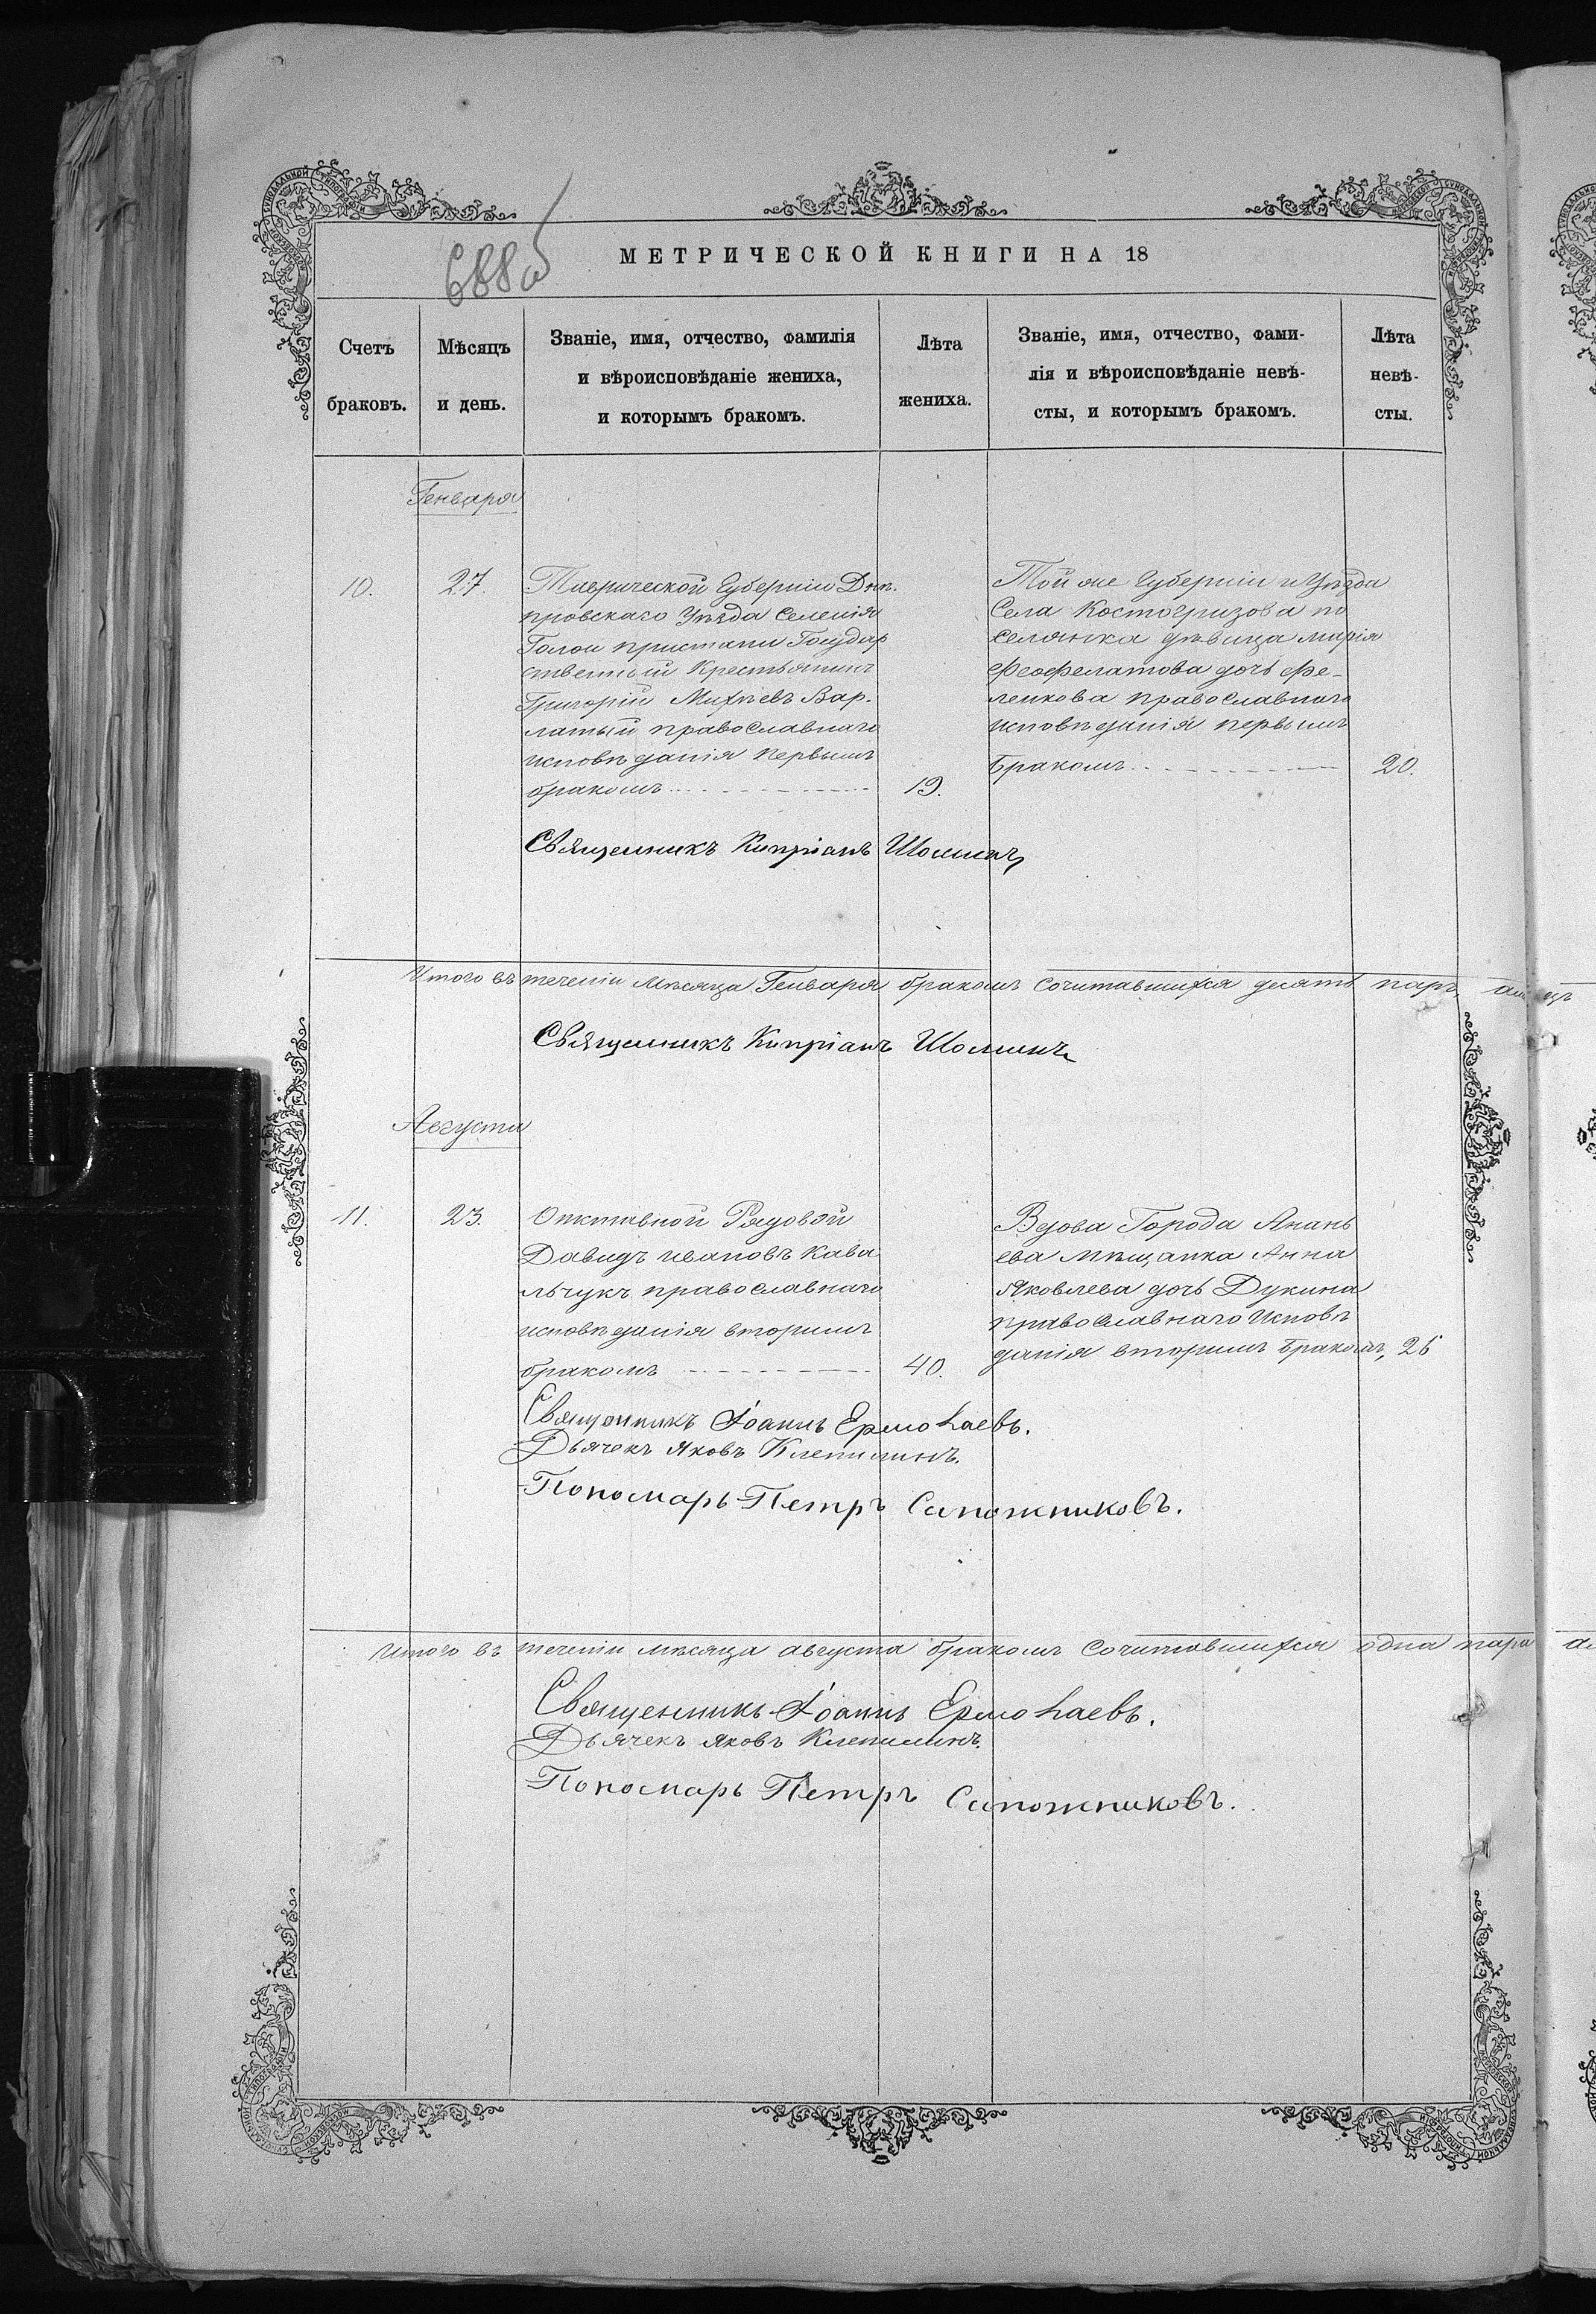 688об
МЕТРИЧЕСКОЙ КНИГИ НА 18
Счетъ браковъ.
Мѣсяцъ и день.
Званіе, имя, отчество, фамилія
и вѣроисповѣданіе жениха,
и которымъ бракомъ.
Лѣта жениха.
Званіе, имя, отчество, фами-
лія и вѣроисповѣданіе невѣ-
сты, и которымъ бракомъ.
Лѣта невѣ-
сты.
Генваря
10.
27.
Таврической Губерніи Днѣ-
провскаго Уѣзда Селенія
Голой пристани Государ
ственный Крестьянинъ
Григорій Михѣевъ Вар.
латый православнаго
исповѣданія первымъ
бракомъ
19.
Той же Губерніи и Уѣзда
Села Костогризова по
селянка дѣвица Марія
Феофелатова дочь Фе-
ленкова православнаго
исповѣданія первымъ
бракомъ
20.
Священникъ Кипріанъ Шоминъ
Итого въ теченіи мѣсяца Генваря бракомъ сочитавшихся десять паръ,
Священникъ Кипріанъ Шоминъ
Августа
11.
23.
Отставной Рядовой
Давидъ Ивановъ Кава
льчукъ православнаго
исповѣданія вторымъ
бракомъ
40.
Вдова Города Анань
ева мѣщанка Анна
Яковлева дочь Дукина
православнаго исповѣ
данія вторимъ бракомъ,
Священникъ Іоаннъ Ермолаевъ.
Дьячекъ Яковъ Клепининъ.
Пономарь Петръ Сапожниковъ.
Итого въ теченіи мѣсяца августа бракомъ сочитавшихся одна пара
Священникъ Іоаннъ Ермолаевъ.
Дьячекъ Яковъ Клепининъ.
Пономарь Петръ Сапожниковъ.